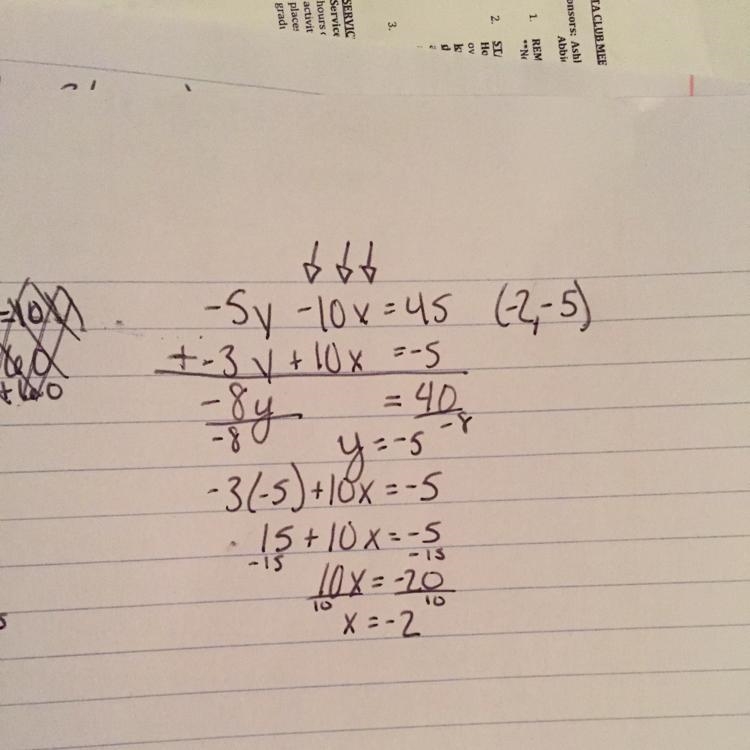 TA CLUB MEE
onsors: Ashl
Abbi
1. REM
**N
2. ST
He
ov
3.
SERVIC
Service
hours
activit
place
grad
-5y -10x = 45 (-2,-5)
+-3y +10x = -5
-8y = 40
-8 -8
y = -5
-3(-5)+10x = -5
15 + 10x = -5
-15 -15
10x = -20
10 10
x = -2